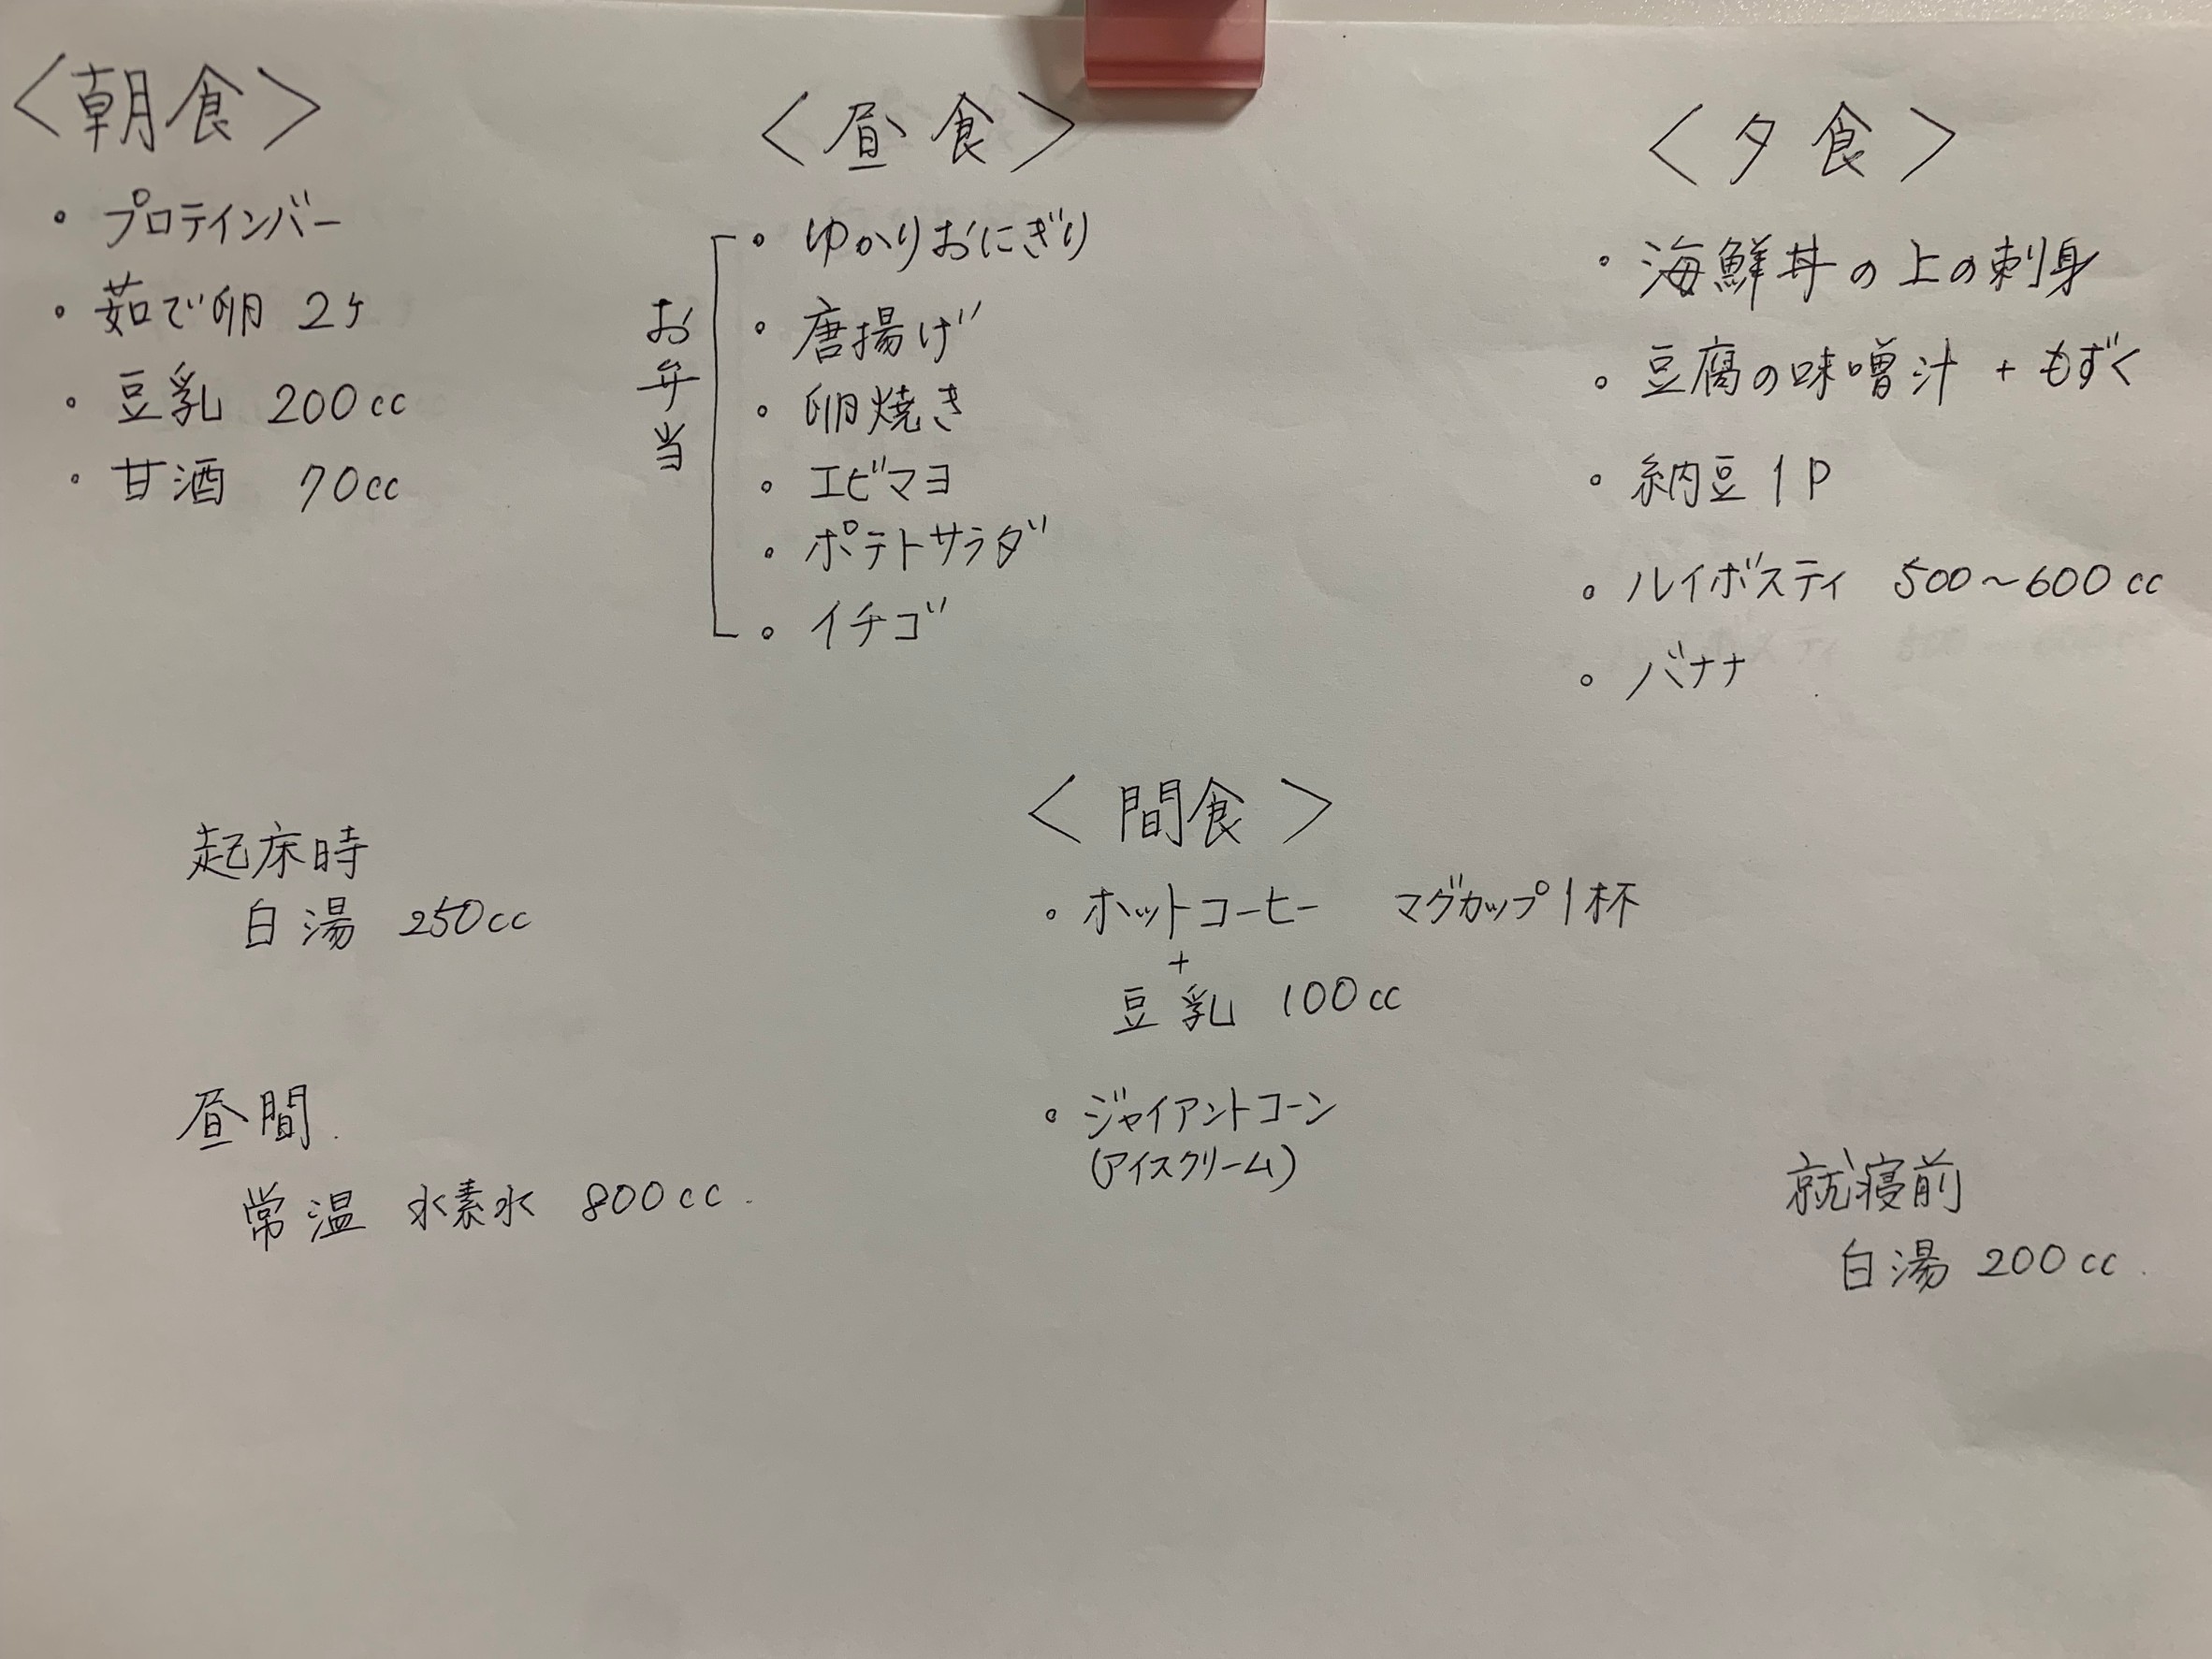 <朝食>
• プロテインバー
• 茹で卵 2ケ
• 豆乳 200cc
• 甘酒 70cc
<昼食>
お弁当
• ゆかりおにぎり
• 唐揚げ
• 卵焼き
• エビマヨ
• ポテトサラダ
• イチゴ
<夕食>
• 海鮮丼の上の刺身
• 豆腐の味噌汁 + もずく
• 納豆 1P
• ルイボスティ 500~600cc
• バナナ
起床時
白湯 250cc
昼間.
常温 水素水 800cc.
<間食>
• ホットコーヒー マグカップ1杯
+
豆乳 100cc
• ジャイアントコーン
(アイスクリーム)
就寝前
白湯 200cc.